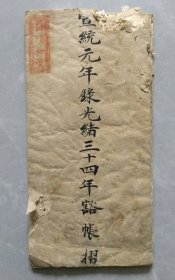 宣統元年錄光緒三十四年豁帳摺